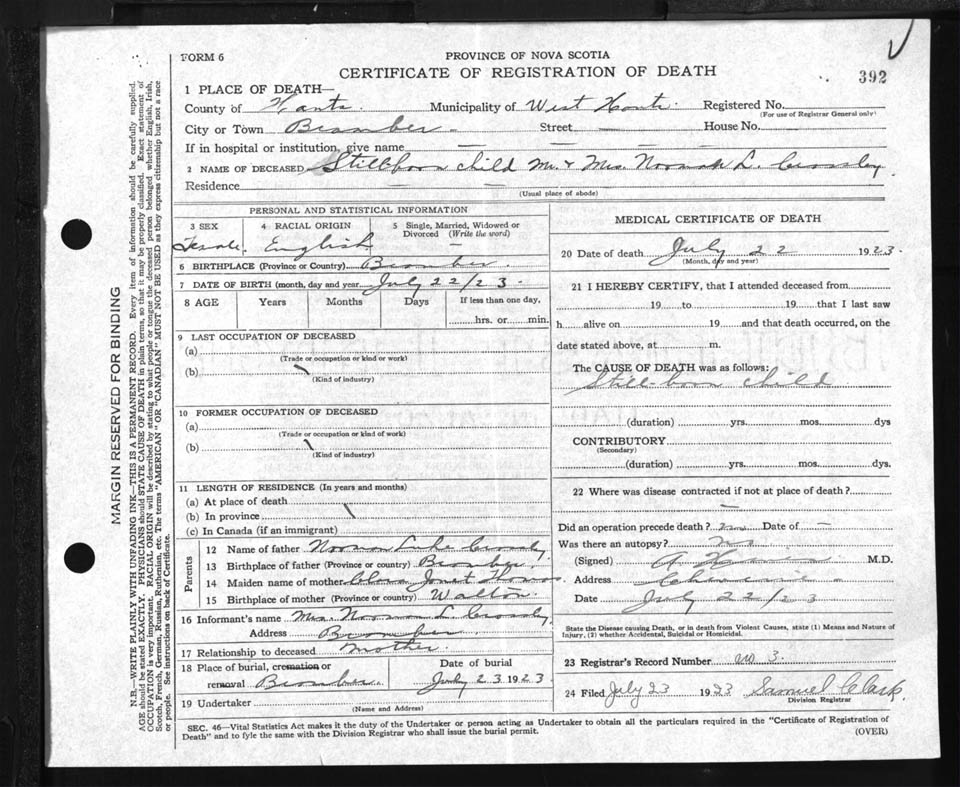 FORM 6
PROVINCE OF NOVA SCOTIA
CERTIFICATE OF REGISTRATION OF DEATH
392
1 PLACE OF DEATH—
County of Hants. Municipality of West Hants. Registered No.
(For use of Registrar General only)
City or Town Bramber — Street — House No.
If in hospital or institution, give name — — —
2 NAME OF DECEASED Stillborn child Mr. & Mrs. Norman L. Crossley
Residence — — —
(Usual place of abode)
PERSONAL AND STATISTICAL INFORMATION
3 SEX
4 RACIAL ORIGIN
5 Single, Married, Widowed or Divorced (Write the word)
English —
6 BIRTHPLACE (Province or Country) Bramber.
7 DATE OF BIRTH (month, day and year) July 22/23.
8 AGE Years Months Days If less than one day,
hrs. or min.
9 LAST OCCUPATION OF DECEASED
(a)
(Trade or occupation or kind or work)
(b)
(Kind of industry)
10 FORMER OCCUPATION OF DECEASED
(a)
(Trade or occupation or kind of work)
(b)
(Kind of industry)
11 LENGTH OF RESIDENCE (In years and months)
(a) At place of death
(b) In province
(c) In Canada (if an immigrant)
Parents
12 Name of father Norman Luke Crossley
13 Birthplace of father (Province or country) Bramber.
14 Maiden name of mother Clara Janet
15 Birthplace of mother (Province or country) Walton.
16 Informant's name Mrs. Norman L. Crossley
Address Bramber
17 Relationship to deceased Mother.
18 Place of burial, cremation or removal Bramber.
Date of burial July 23. 1923
19 Undertaker
(Name and Address)
MEDICAL CERTIFICATE OF DEATH
20 Date of death July 22 1923.
(Month, day and year)
21 I HEREBY CERTIFY, that I attended deceased from
19 to 19 that I last saw
h alive on 19 and that death occurred, on the
date stated above, at m.
The CAUSE OF DEATH was as follows:
Still-born child
(duration) yrs. mos. dys
CONTRIBUTORY
(Secondary)
(duration) yrs. mos. dys.
22 Where was disease contracted if not at place of death?
Did an operation precede death? Date of —
Was there an autopsy? No
(Signed) M.D.
Address
Date July 22/23
State the Disease causing Death, or in death from Violent Causes, state (1) Means and Nature of
Injury, (2) whether Accidental, Suicidal or Homicidal.
23 Registrar's Record Number no 3.
24 Filed July 23 1923 Samuel Clark.
Division Registrar
SEC. 46—Vital Statistics Act makes it the duty of the Undertaker or person acting as Undertaker to obtain all the particulars required in the "Certificate of Registration of
Death" and to fyle the same with the Division Registrar who shall issue the burial permit.
(OVER)
MARGIN RESERVED FOR BINDING
N.B.—WRITE PLAINLY WITH UNFADING INK—THIS IS A PERMANENT RECORD. Every item of information should be carefully supplied.
AGE should be stated EXACTLY. PHYSICIANS should STATE CAUSE OF DEATH in plain terms, so that it may be properly classified. Exact statement of
OCCUPATION is very important. RACIAL ORIGIN will be described by stating to what people or tongue the deceased person belonged whether English, Irish,
Scotch, French, German, Russian, Ruthenian, etc. The terms "AMERICAN" OR "CANADIAN" MUST NOT BE USED as they express citizenship but not a race
or people. See instructions on back of Certificate.